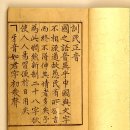 訓民正音
國之語音異乎中國與文字
不相流通故愚民有所欲言
而終不得伸其情者多矣予
爲此憫然新制二十八字欲
使人人易習便於日用矣
ㄱ牙音如君字初發聲